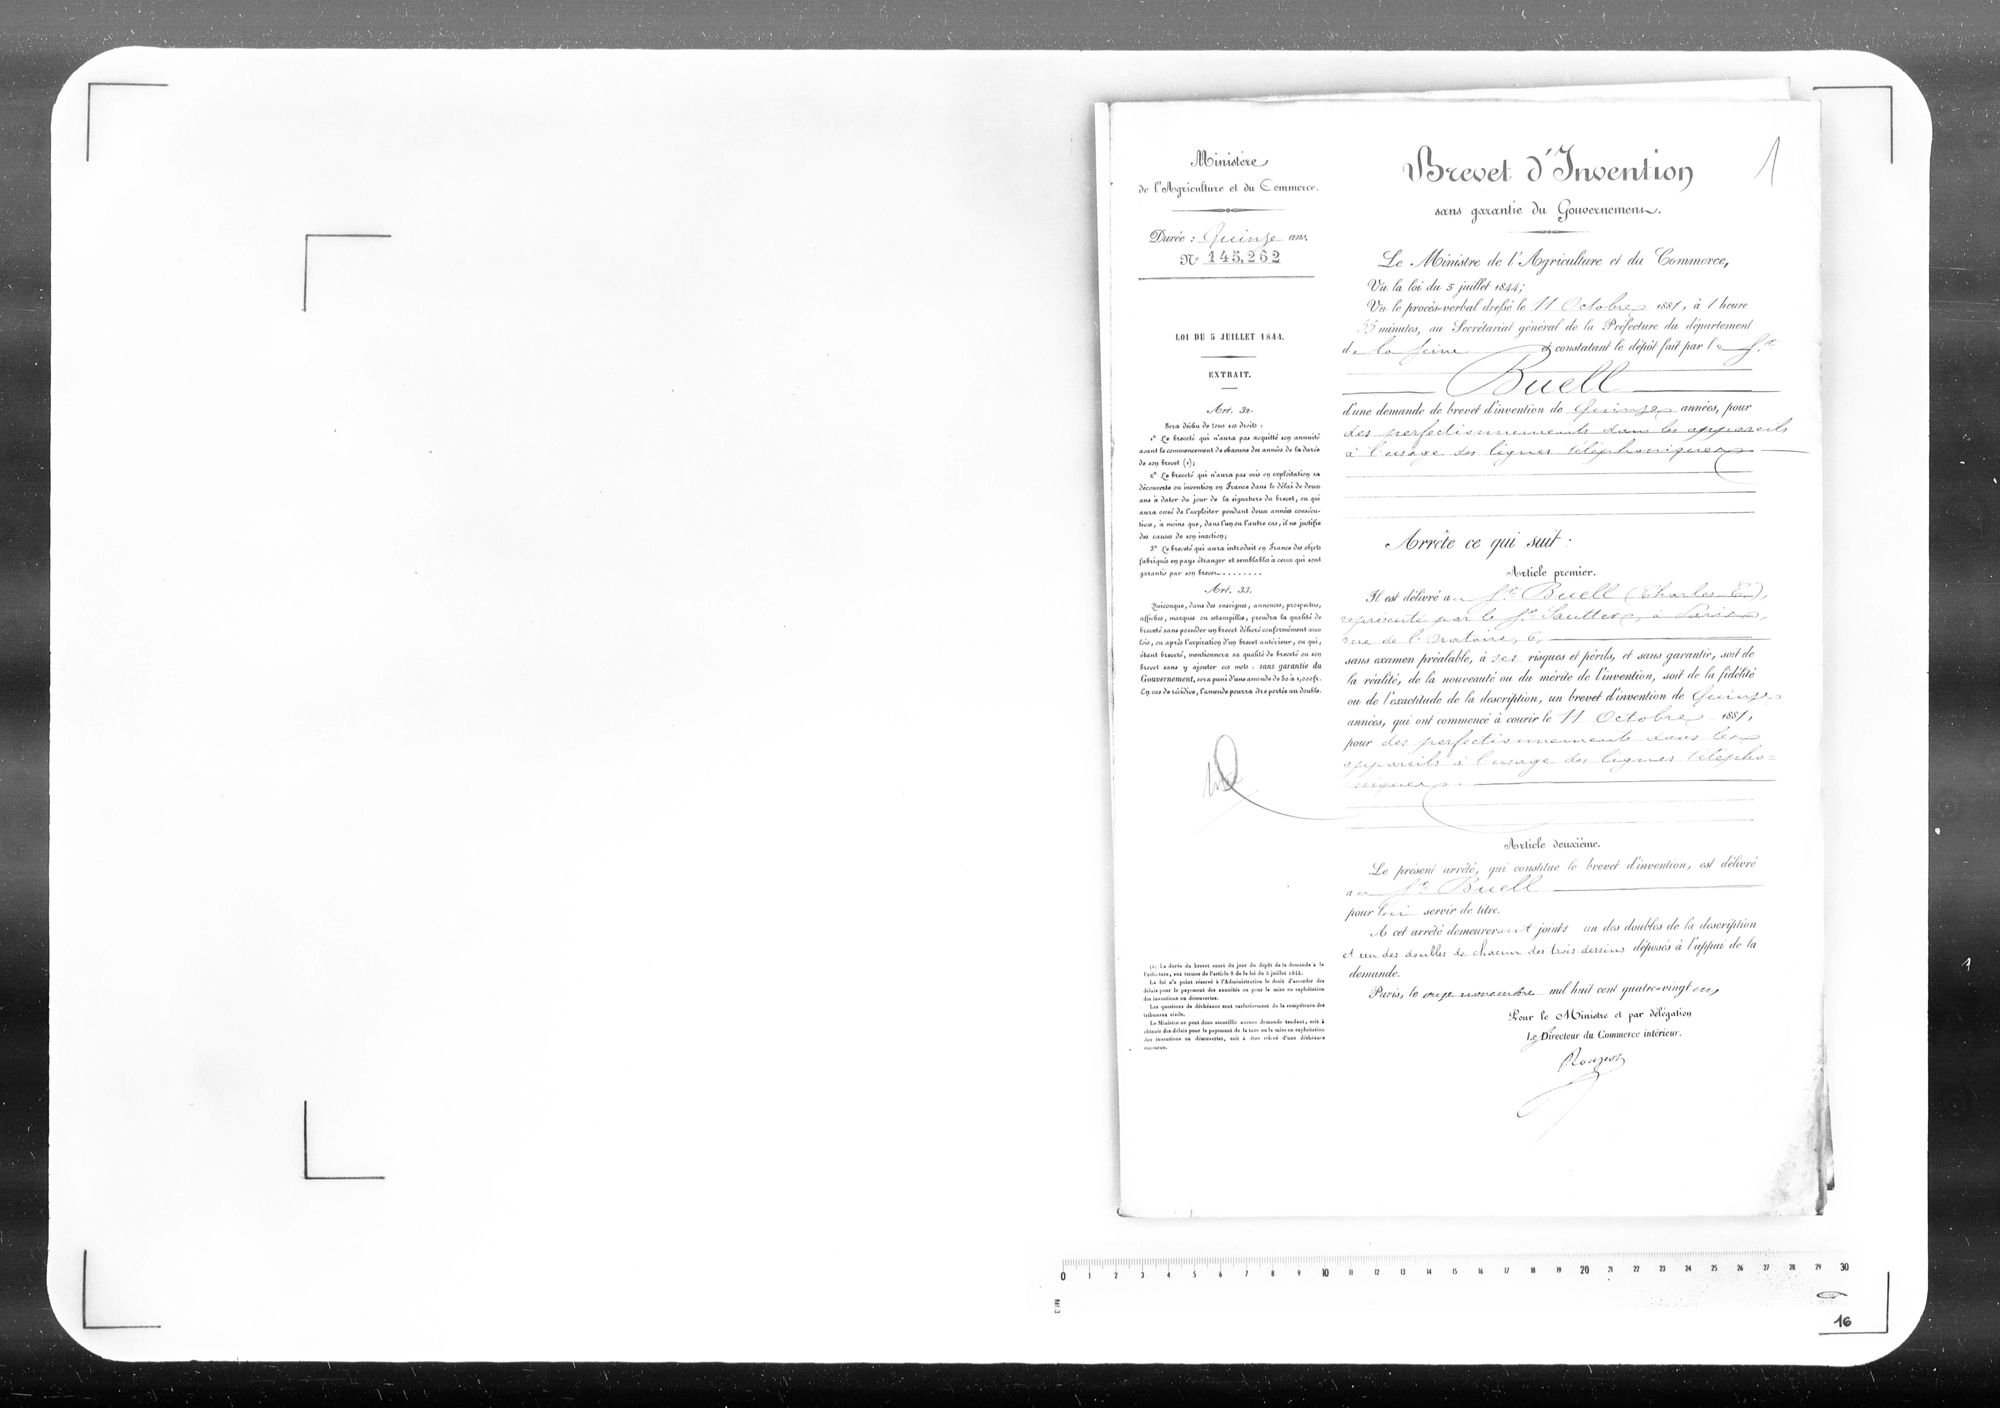 Ministère
de l'Agriculture et du Commerce.
Durée : Quinze ans.
N° 145,262
LOI DU 5 JUILLET 1844.
EXTRAIT.
Art. 32.
Sera déchu de tous ses droits :
1° Le breveté qui n'aura pas acquitté son annuité
avant le commencement de chacune des années de la durée
de son brevet (1);
2° Le breveté qui n'aura pas mis en exploitation sa
découverte ou invention en France dans le délai de deux
ans à dater du jour de la signature du brevet, ou qui
aura cessé de l'exploiter pendant deux années consécu-
tives, à moins que, dans l'un ou l'autre cas, il ne justifie
des causes de son inaction;
3° Le breveté qui aura introduit en France des objets
fabriqués en pays étranger et semblables à ceux qui sont
garantis par son brevet........
Art. 33.
Quiconque, dans des enseignes, annonces, prospectus,
affiches, marques ou estampilles, prendra la qualité de
breveté sans posséder un brevet délivré conformément aux
lois, ou après l'expiration d'un brevet antérieur, ou qui,
étant breveté, mentionnera sa qualité de breveté ou son
brevet sans y ajouter ces mots : sans garantie du
Gouvernement, sera puni d'une amende de 50 à 1,000 fr.
En cas de récidive, l'amende pourra être portée au double.
(1) La durée du brevet court du jour du dépôt de la demande à la
Préfecture, aux termes de l'article 8 de la loi du 5 juillet 1844.
La loi n'a point réservé à l'Administration le droit d'accorder des
délais pour le payement des annuités ou pour la mise en exploitation
des inventions ou découvertes.
Les questions de déchéance sont exclusivement de la compétence des
tribunaux civils.
Le Ministre ne peut donc accueillir aucune demande tendant, soit à
obtenir des délais pour le payement de la taxe ou la mise en exploitation
des inventions ou découvertes, soit à être relevé d'une déchéance
encourue.
1
Brevet d'Invention
sans garantie du Gouvernement.
Le Ministre de l'Agriculture et du Commerce,
Vu la loi du 5 juillet 1844;
Vu le procès-verbal dressé le 11 Octobre 1881, à 1 heure
55 minutes, au Secrétariat général de la Préfecture du département
de la Seine et constatant le dépôt fait par le Sr
Buell
d'une demande de brevet d'invention de Quinze années, pour
des perfectionnements dans les appareils
à l'usage des lignes téléphoniques
Arrête ce qui suit :
Article premier.
Il est délivré au Sr Buell (Charles E),
représenté par le Sr Sautter, à Paris,
rue de l'Oratoire, 6,
sans examen préalable, à ses risques et périls, et sans garantie, soit de
la réalité, de la nouveauté ou du mérite de l'invention, soit de la fidélité
ou de l'exactitude de la description, un brevet d'invention de Quinze
années, qui ont commencé à courir le 11 Octobre 1881,
pour des perfectionnements dans les
appareils à l'usage des lignes télépho=
niques.
Article deuxième.
Le présent arrêté, qui constitue le brevet d'invention, est délivré
au Sr Buell
pour lui servir de titre.
A cet arrêté demeureront joints un des doubles de la description
et un des doubles de chacun des trois dessins déposés à l'appui de la
demande.
Paris, le onze novembre mil huit cent quatre-vingt un
Pour le Ministre et par délégation
Le Directeur du Commerce intérieur.
0 1 2 3 4 5 6 7 8 9 10 11 12 13 14 15 16 17 18 19 20 21 22 23 24 25 26 27 28 29 30
16
1